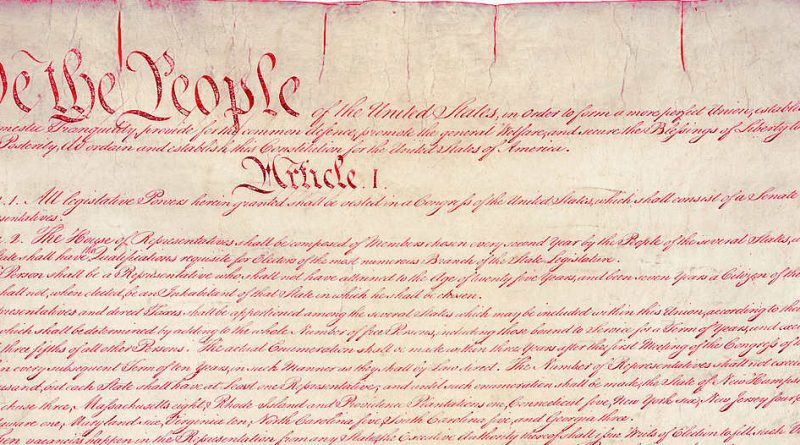 We the People
of the United States, in Order to form a more perfect Union, establ
mestic Tranquility, provide for the common defence, promote the general Welfare, and secure the Blessings of Liberty to
Posterity, do ordain and establish this Constitution for the United States of America.
Article. I.
. 1. All legislative Powers herein granted shall be vested in a Congress of the United States, which shall consist of a Senate
sentatives.
. 2. The House of Representatives shall be composed of Members chosen every second Year by the People of the several States,
tate shall have the Qualifications requisite for Electors of the most numerous Branch of the State Legislature.
Person shall be a Representative who shall not have attained to the Age of twenty five Years, and been seven Years a Citizen of th
hall not, when elected, be an Inhabitant of that State in which he shall be chosen.
presentatives and direct Taxes shall be apportioned among the several States which may be included within this Union, according to the
which shall be determined by adding to the whole Number of free Persons, including those bound to Service for a Term of Years, and
three fifths of all other Persons. The actual Enumeration shall be made within three Years after the first Meeting of the Congress of
in every subsequent Term of ten Years, in such Manner as they shall by Law direct. The Number of Representatives shall not
ousand, but each State shall have at Least one Representative; and until such enumeration shall be made, the State of New Hamps
chuse three, Massachusetts eight, Rhode Island and Providence Plantations one, Connecticut five, New York six, New Jersey four,
aware one, Maryland six, Virginia ten, North Carolina five, South Carolina five, and Georgia three.
en vacancies happen in the Representation from any State, the Executive Authority thereof shall issue Writs of Election to fill such